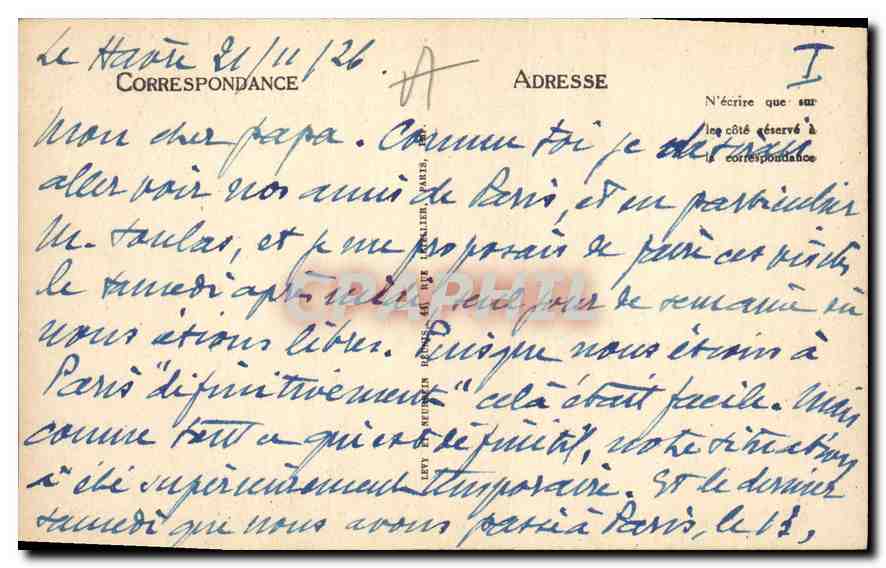 Le Havre 21/11/26.
CORRESPONDANCE
ADRESSE
I
N'écrire que sur
le côté réservé à
la correspondance
Mon cher papa. Comme toi je désirais
aller voir nos amis de Paris, et en particulier
M. Soulas, et je me proposais de faire ces visites
le samedi après midi, seul jour de semaine où
nous étions libres. Puisque nous étions à
Paris "définitivement" cela était facile. Mais
comme tout ce qui est définitif, notre situation
a été supérieurement temporaire. Et le dernier
samedi que nous avons passé à Paris, le 13,
LEVY ET NEURDEIN RÉUNIS, 44, RUE LETELLIER, PARIS, IMP.
CPAPHIL